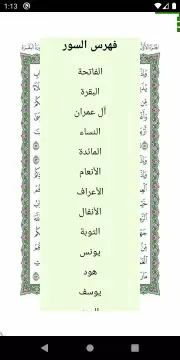 1:13
فهرس السور
الفاتحة
البقرة
آل عمران
النساء
المائدة
الأنعام
الأعراف
الأنفال
التوبة
يونس
هود
يوسف